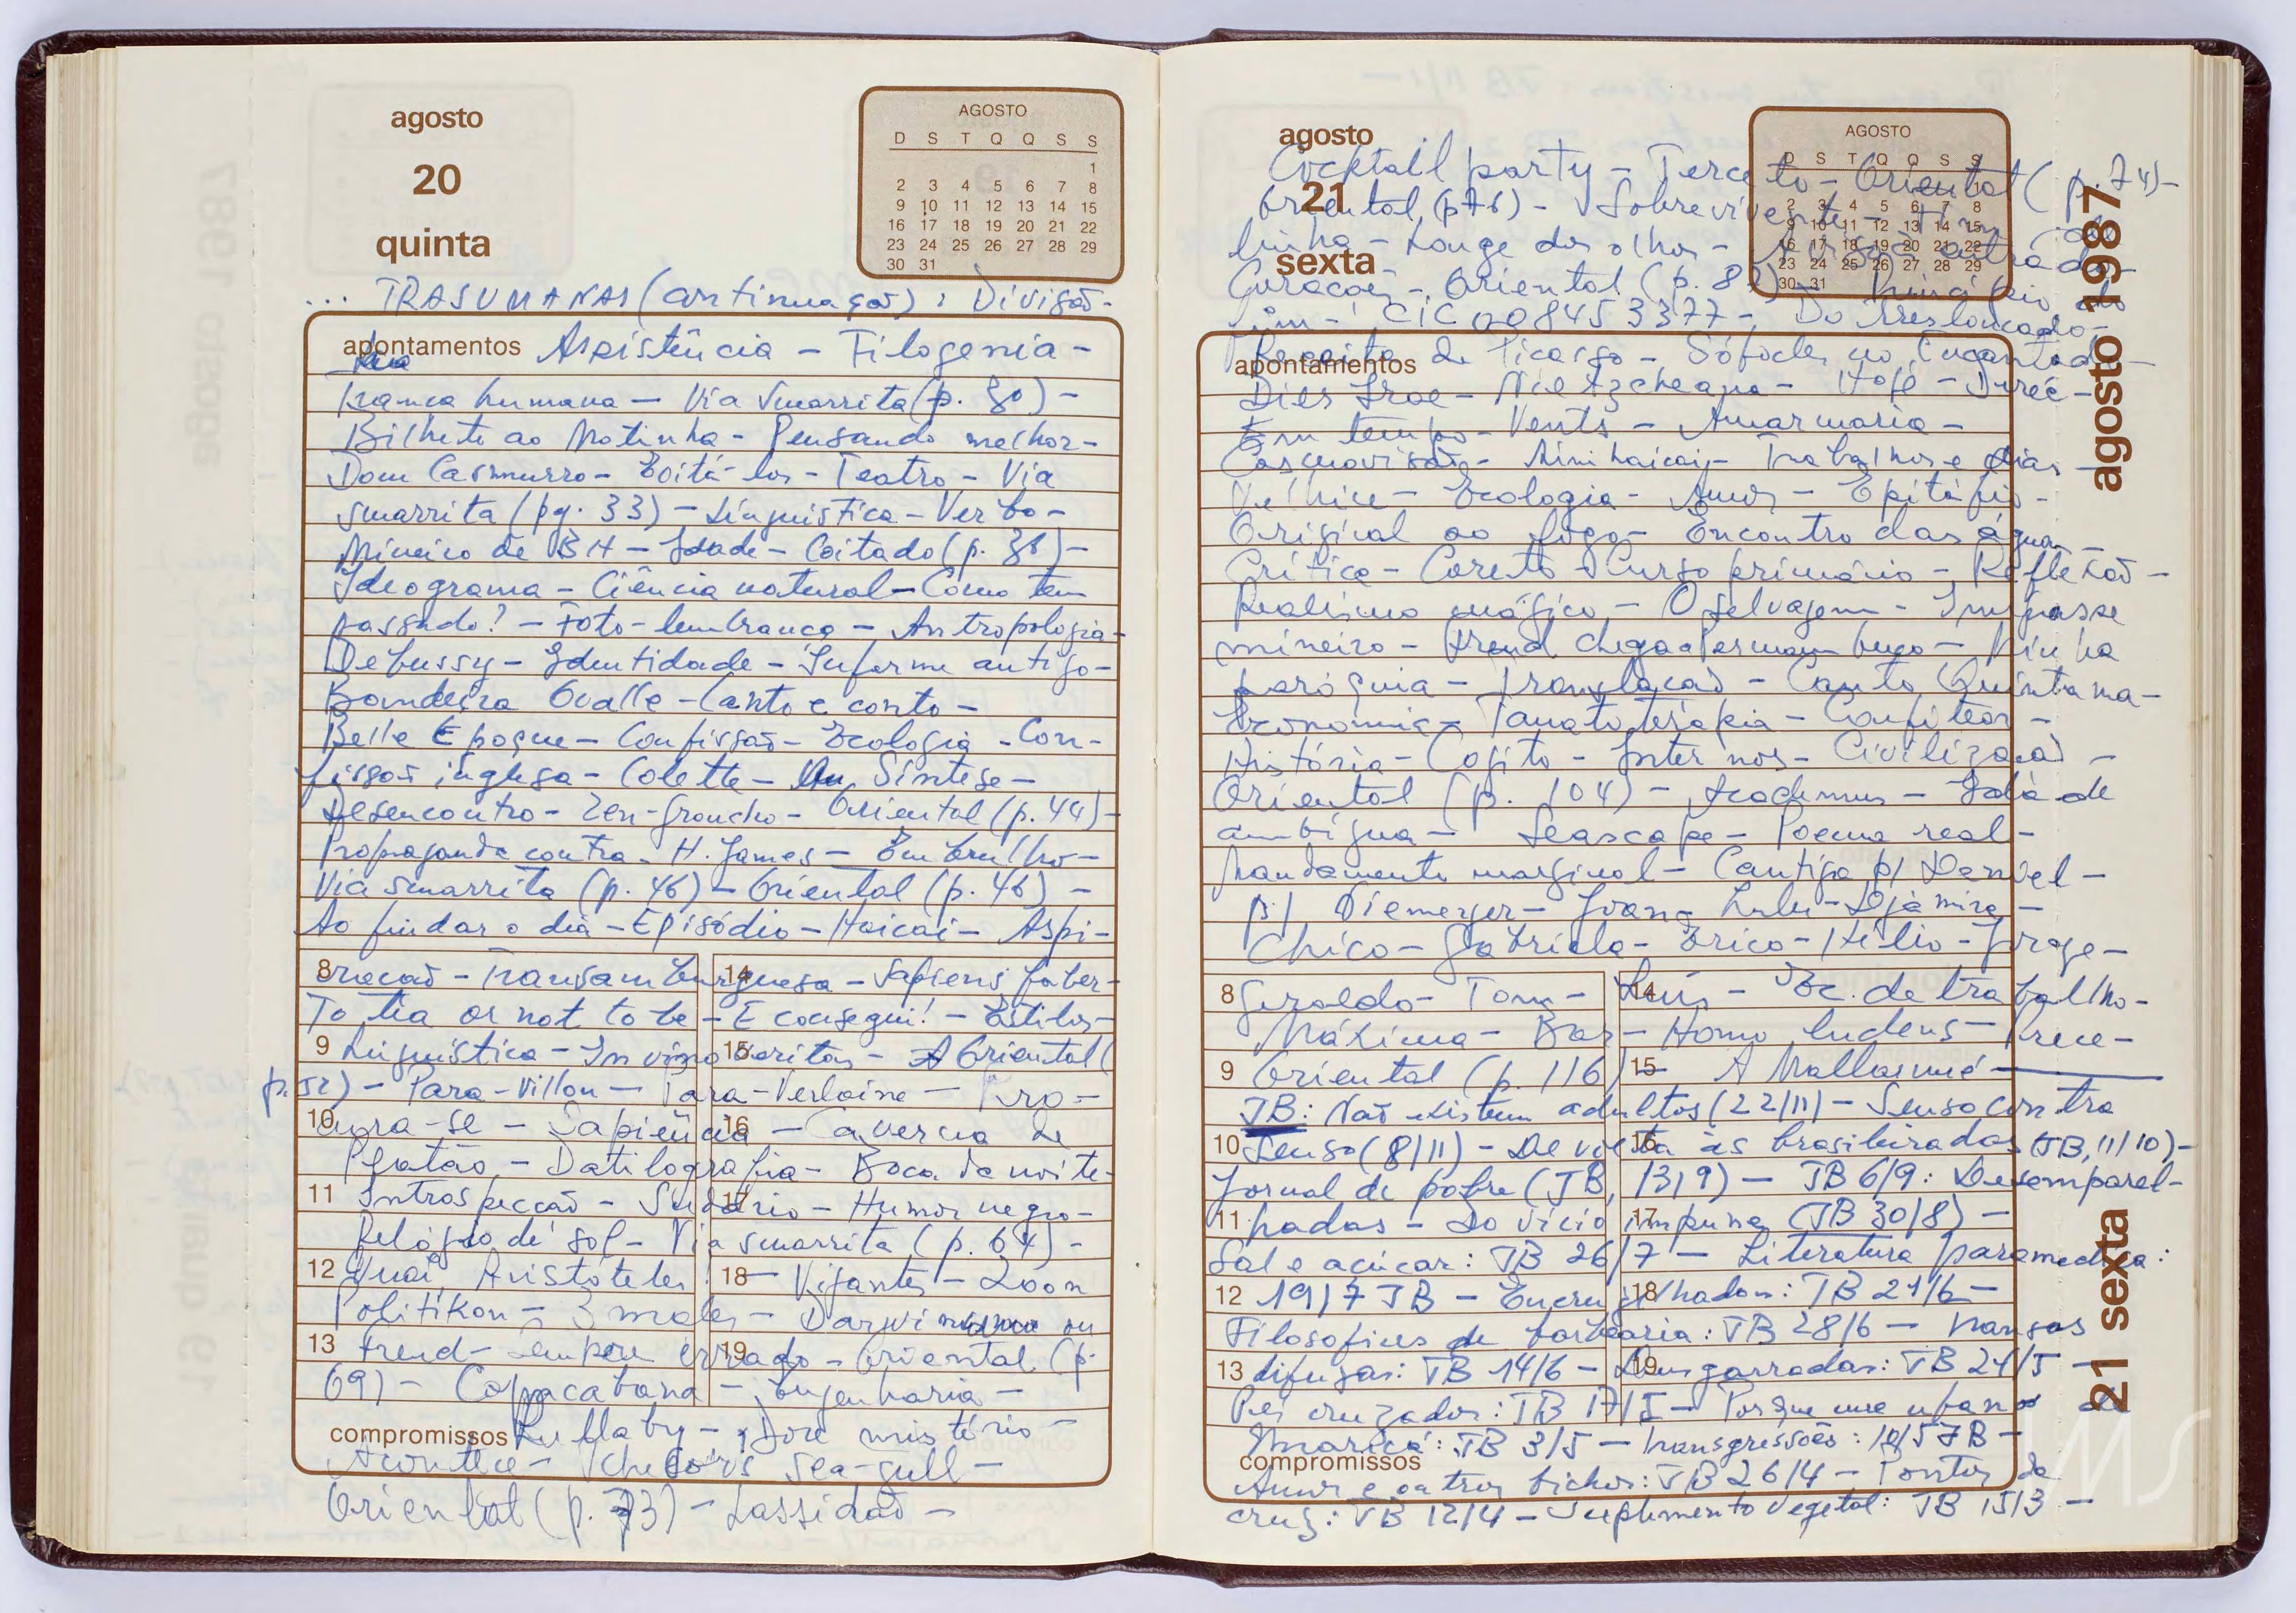 agosto
20
quinta
AGOSTO
D S T Q Q S S
1
2 3 4 5 6 7 8
9 10 11 12 13 14 15
16 17 18 19 20 21 22
23 24 25 26 27 28 29
30 31
... TRASUMANAS (continuação): Divisão-
apontamentos Assistência - Filogenia -
humana - Via Smarrita (p. 30) -
Bilhete ao Motinha - Pensando melhor -
Dom Casmurro - Coitá-los - Teatro - Via
smarrita (pg. 33) - Linguística - Verbo -
Mineiro de BH - Idade - Coitado (p. 36) -
Ideograma - Ciência natural - Como tem
passado? - Foto-lembrança - Antropologia -
Debussy - Identidade - Informe antigo -
Bandeira Ovalle - Canto e conto -
Belle Époque - Confissão - Ecologia - Con-
fissão inglesa - Colette - Síntese -
Desencontro - Zen-Groucho - Oriental (p. 44) -
Propaganda contra - H. James - Embrulho -
Via smarrita (p. 46) - Oriental (p. 46) -
Ao findar o dia - Episódio - Haicai - Aspi-
8 ração - Transamburguesa - 14 Sapiens faber -
To tea or not to be - E consegui! - Estilos -
9 Linguística - In vino veritas - 15 Oriental (
p. 52) - Para-Villon - Para-Verlaine - Pro-
10 cura-se - Sapiência - 16 Caverna de
Platão - Datilografia - Boca da noite -
11 Introspecção - Sudário - 17 Humor negro -
Relógio de sol - Via smarrita (p. 64) -
12 Quai, Aristóteles! 18 - Vigantes - Zoon
Politikon - 3 males - Darwi ou
13 Freud - Sempre errado - 19 Oriental (p.
69) - Copacabana - Engenharia -
compromissos Lullaby - Doce mistério -
Acontece - Sea-gull -
Oriental (p. 73) - Lassidão -
agosto
21
sexta
AGOSTO
D S T Q Q S S
1
2 3 4 5 6 7 8
9 10 11 12 13 14 15
16 17 18 19 20 21 22
23 24 25 26 27 28 29
30 31
agosto 1987
21 sexta
Cocktail party - Terceto - Oriental (p. 74) -
Oriental (p 76) - Sobrevivente -
linha - Longe dos olhos -
Curaçao - Oriental (p. 8 - Princípio do
fim - CIC 008453377 - Do tresloucado -
apontamentos Receita de Picasso - Sófocles no Encantado -
Dies Irae - Nietzscheana - Hoje -
Em tempo - Vents - Amarmaria -
Cosmovisão - Minihaicai - Trabalhos e dias -
Velhice - Ecologia - Amor - Epitáfio -
Original ao fogo - Encontro das águas -
Crítica - Coreto - Curso primário - Reflexão -
Realismo mágico - O selvagem - Impasse
mineiro - Freud chega a Pernambuco - Minha
paróquia - Translação - Canto Quintana -
Economia - Tanatoterapia - Confiteor -
História - Cogito - Inter nos - Civilização -
Oriental (p. 104) - - Sala de
ambígua - Seascape - Poema real -
Mandamento marginal - Cantiga p/ Danúbel -
p/ Niemeyer - Joana - Lulu - Djamira -
Chico - Gabriela - Erico - Hélio - Jorge -
8 Geraldo - Tom - 14 Luís - Ec. de trabalho -
Máxima - Bar - Homo ludens - Prece -
9 Oriental (p. 116) 15 - A Mallarmé
JB: Não existem adultos (22/11) - Senso contra
10 senso (8/11) - De volta 16 às brasileiradas (JB, 11/10) -
Jornal de pobre (JB, 13/9) - JB 6/9: Desemparel-
11 hadas - Do vício 17 impune (JB 30/8) -
Sal e açúcar: JB 26/7 - Literatura paramédica:
12 19/7 JB - Encruzilhados 18: JB 21/6 -
Filosofices de barbearia: JB 28/6 - Mansas
13 difusas: JB 14/6 - 19 Desgarradas: JB 24/5 -
Pés cruzados: JB 17/5 - Por que me ufano de
Maricá: JB 3/5 - Transgressões: 10/5 JB -
compromissos
Amor e outros bichos: JB 26/4 - Pontos da
cruz: JB 12/4 - Suplemento vegetal: JB 15/3 -
IMS